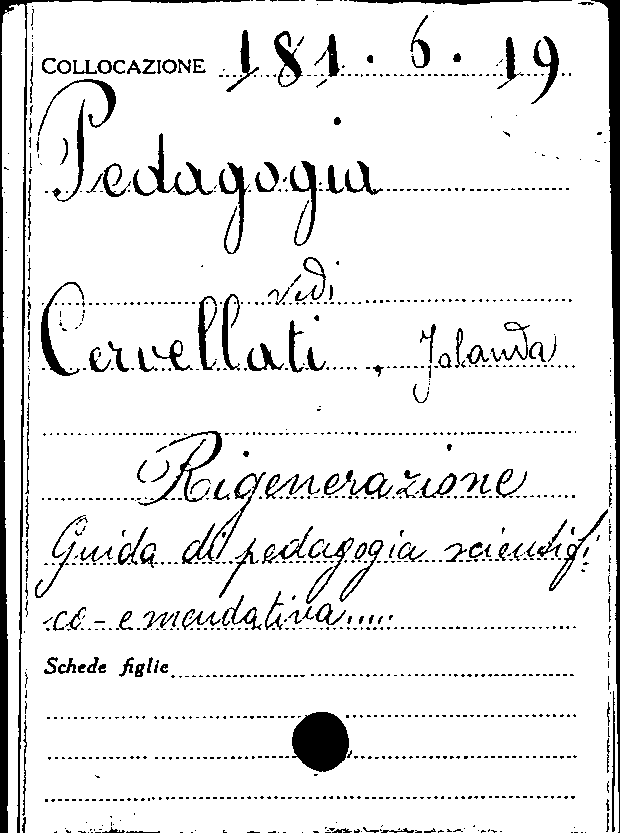 COLLOCAZIONE 181.6.19
Pedagogia
vedi
Cervellati, Jolanda
Rigenerazione
Guida di pedagogia scientifi:
co-emendativa.....
Schede figlie